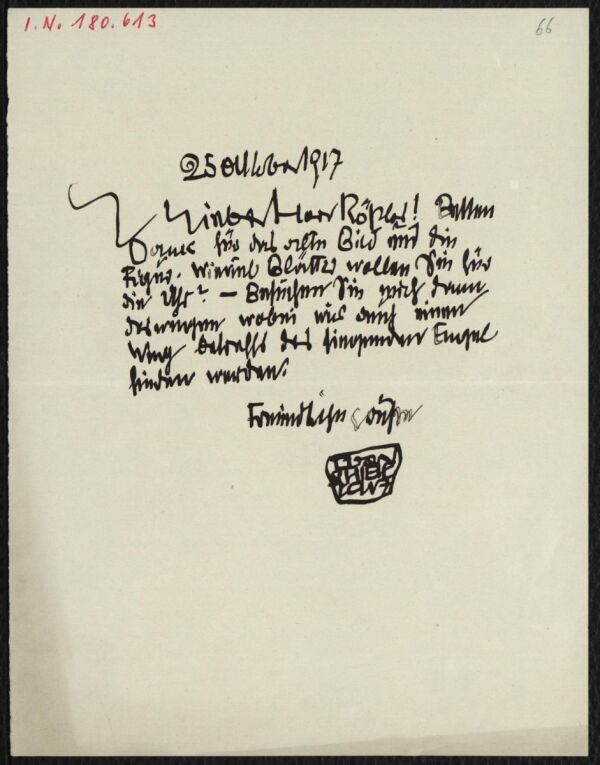 I.N. 180.613
66
25 Oktober 1917
Lieber Herr Rößler! Besten
Dank für das alte Bild und die
Figur. Wieviel Blätter wollen Sie für
die Uhr? – Besuchen Sie mich dann
deswegen wobei wir auch einen
Weg betreffs des singenden Engel
finden werden.
Freundliche Grüße
EGON
SCHIELE
1917